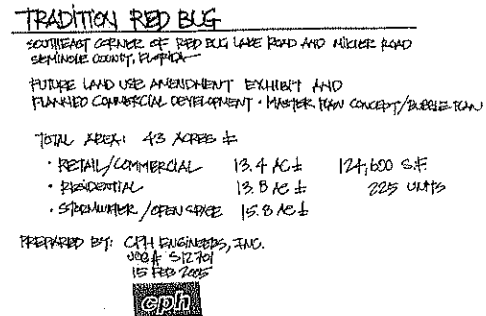 TRADITION RED BUG
SOUTHEAST CORNER OF RED BUG LAKE ROAD AND MIKLER ROAD
SEMINOLE COUNTY, FLORIDA
FUTURE LAND USE AMENDMENT EXHIBIT AND
PLANNED COMMERCIAL DEVELOPMENT • MASTER PLAN CONCEPT/BUBBLE PLAN
TOTAL AREA: 43 ACRES ±
• RETAIL/COMMERCIAL 13.4 AC ± 124,600 S.F.
• RESIDENTIAL 13.8 AC ± 225 UNITS
• STORMWATER/OPEN SPACE 15.8 AC ±
PREPARED BY: CPH ENGINEERS, INC.
JOB # S12701
15 FEB 2005
cph